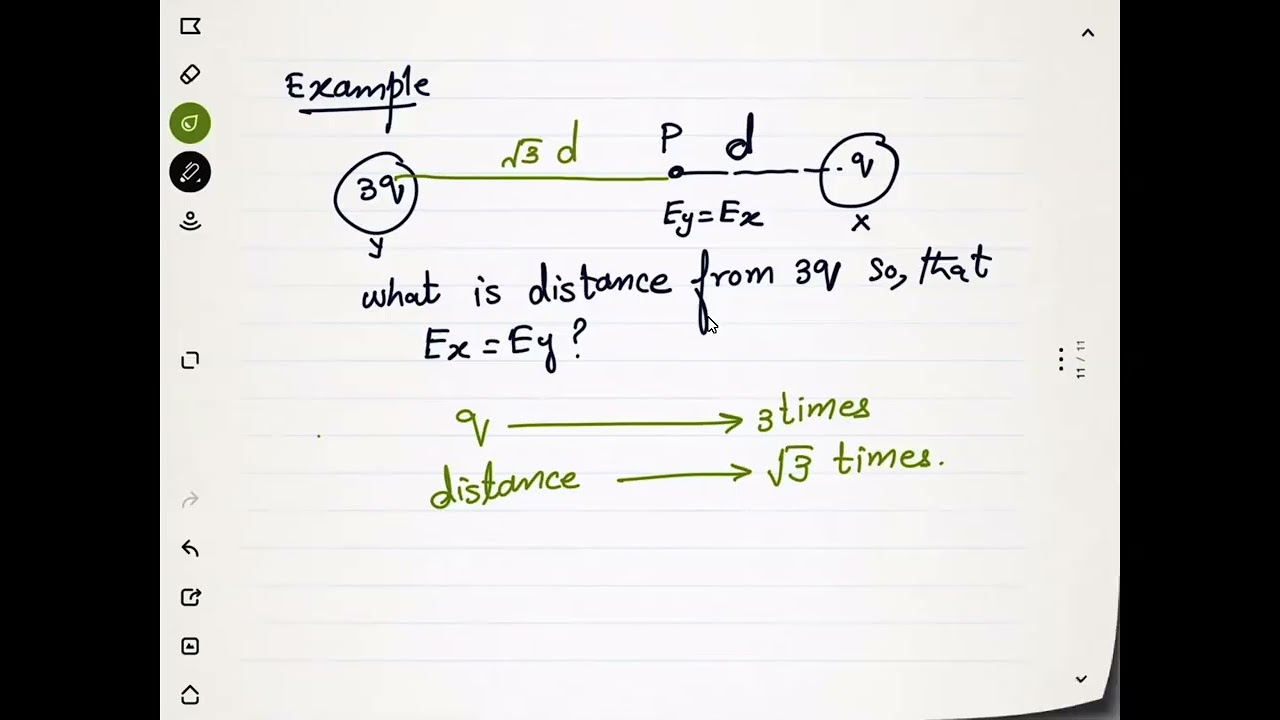 Example
√3 d
P
d
3q
q
Ey=Ex
y
x
what is distance from 3q so, that
Ex = Ey ?
q → 3 times
distance → √3 times.
11 / 11